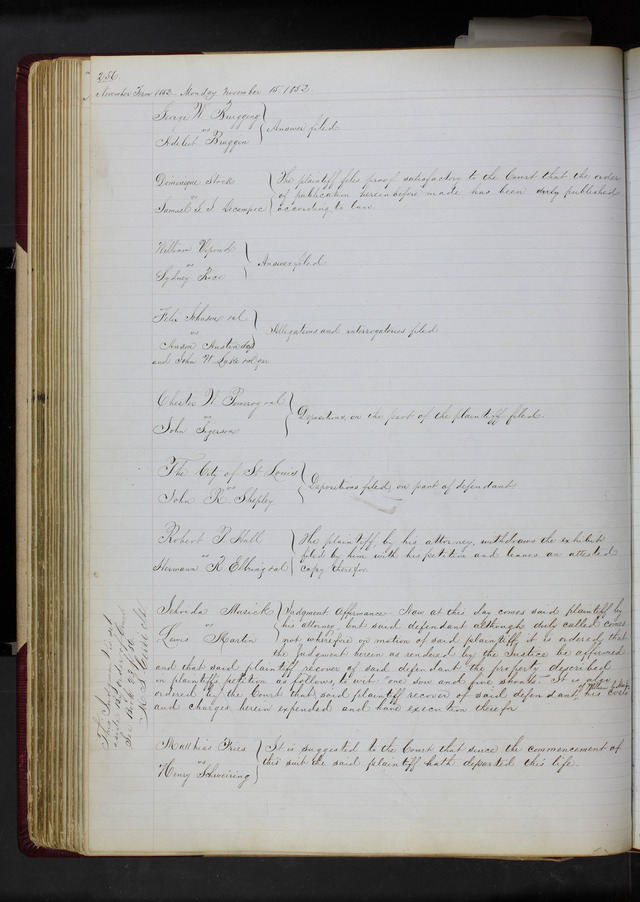 256.
November Term 1852 Monday November 15 1852
George W Bruggin
vs
Bruggin
Answer filed
Dominique Stock
vs
Samuel
The plaintiff files proof satisfactory to the Court that the order
of publication herein before made has been duly published
according to law
William
vs
Sydney Rice
Answer filed
Felix Johnson et al
vs
Anson Austen deft
and John W Luke et al gar
Allegations and interrogatories filed
Chester W Pomeroy et al
vs
John Sigerson
Depositions on the part of the plaintiff filed
The City of St Louis
vs
John R Shepley
Depositions filed on part of defendant
Robert B Hall
vs
Hermann R et al
The plaintiff by his attorney, withdraws the exhibit
filed by him with his petition and leaves an attested
copy therefor
Musick
vs
Lewis Martin
Judgment Affirmance Now at this day comes said plaintiff by
his attorney, but said defendant although duly called comes
not, wherefore on motion of said plaintiff it is ordered that
the Judgment herein as rendered by the Justice be affirmed
and that said plaintiff recover of said defendant the property described
in plaintiffs petition as follows, to wit "one sow and five shoats" It is also
ordered by the Court that said plaintiff recover of said defendant, his costs
and charges herein expended and have execution therefor
This Judgment is set
aside by order of Court
Matthias Fries
vs
Henry Schweiring
It is suggested to the Court that since the commencement of
this suit the said plaintiff hath departed this life.